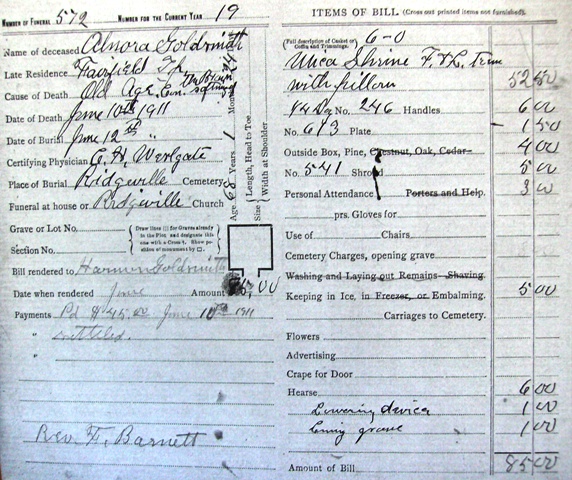 NUMBER OF FUNERAL 572 NUMBER FOR THE CURRENT YEAR 19
Name of deceased Alnora Goldsmidt
Late Residence Fairfield Tp
Cause of Death Old Age
Date of Death June 10th 1911
Date of Burial June 12th "
Certifying Physician C. H. Westgate
Place of Burial Ridgeville Cemetery
Funeral at house or Ridgeville Church
Grave or Lot No.
Section No.
Draw lines ||| for Graves already in the Plot, and designate this one with a Cross †. Show position of monument by □.
Bill rendered to Harmon Goldsmith
Date when rendered June Amount 85.00
Payments Pd $45.00 June 10th 1911
" settled.
"
Rev. F. Barnett
Age 68 Years 1 Months 24
Size Length, Head to Toe
Width at Shoulder
ITEMS OF BILL (Cross out printed items not furnished).
(Full description of Casket or Coffin and Trimmings. 6-0
Utica Shrine F. & L. trim
with pillow 52 50
No. 246 Handles 6 00
No. 613 Plate 1 50
Outside Box, Pine, Chestnut, Oak, Cedar 4 00
No. 541 Shroud 5 00
Personal Attendance Porters and Help. 3 00
prs. Gloves for
Use of Chairs
Cemetery Charges, opening grave
Washing and Laying out Remains Shaving
Keeping in Ice, in Freezer, or Embalming. 5 00
Carriages to Cemetery.
Flowers
Advertising
Crape for Door
Hearse 6 00
Lowering device 1 00
Lining grave 1 00
Amount of Bill 85 00